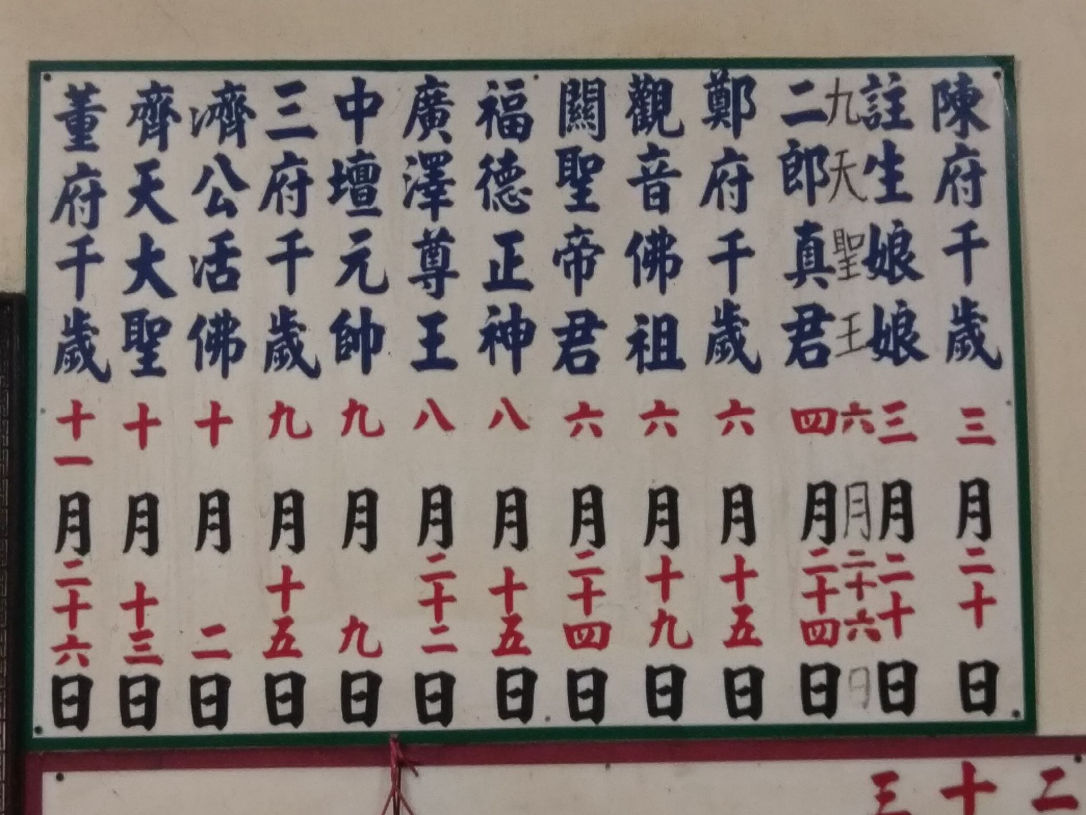 陳府千歲三月二十日
註生娘娘三月二十日
九天聖王六月二十六日
二郎真君四月二十四日
鄭府千歲六月十五日
觀音佛祖六月十九日
關聖帝君六月二十四日
福德正神八月十五日
廣澤尊王八月二十二日
中壇元帥九月九日
三府千歲九月十五日
濟公活佛十月二日
齊天大聖十月十三日
董府千歲十一月二十六日
二
十
三